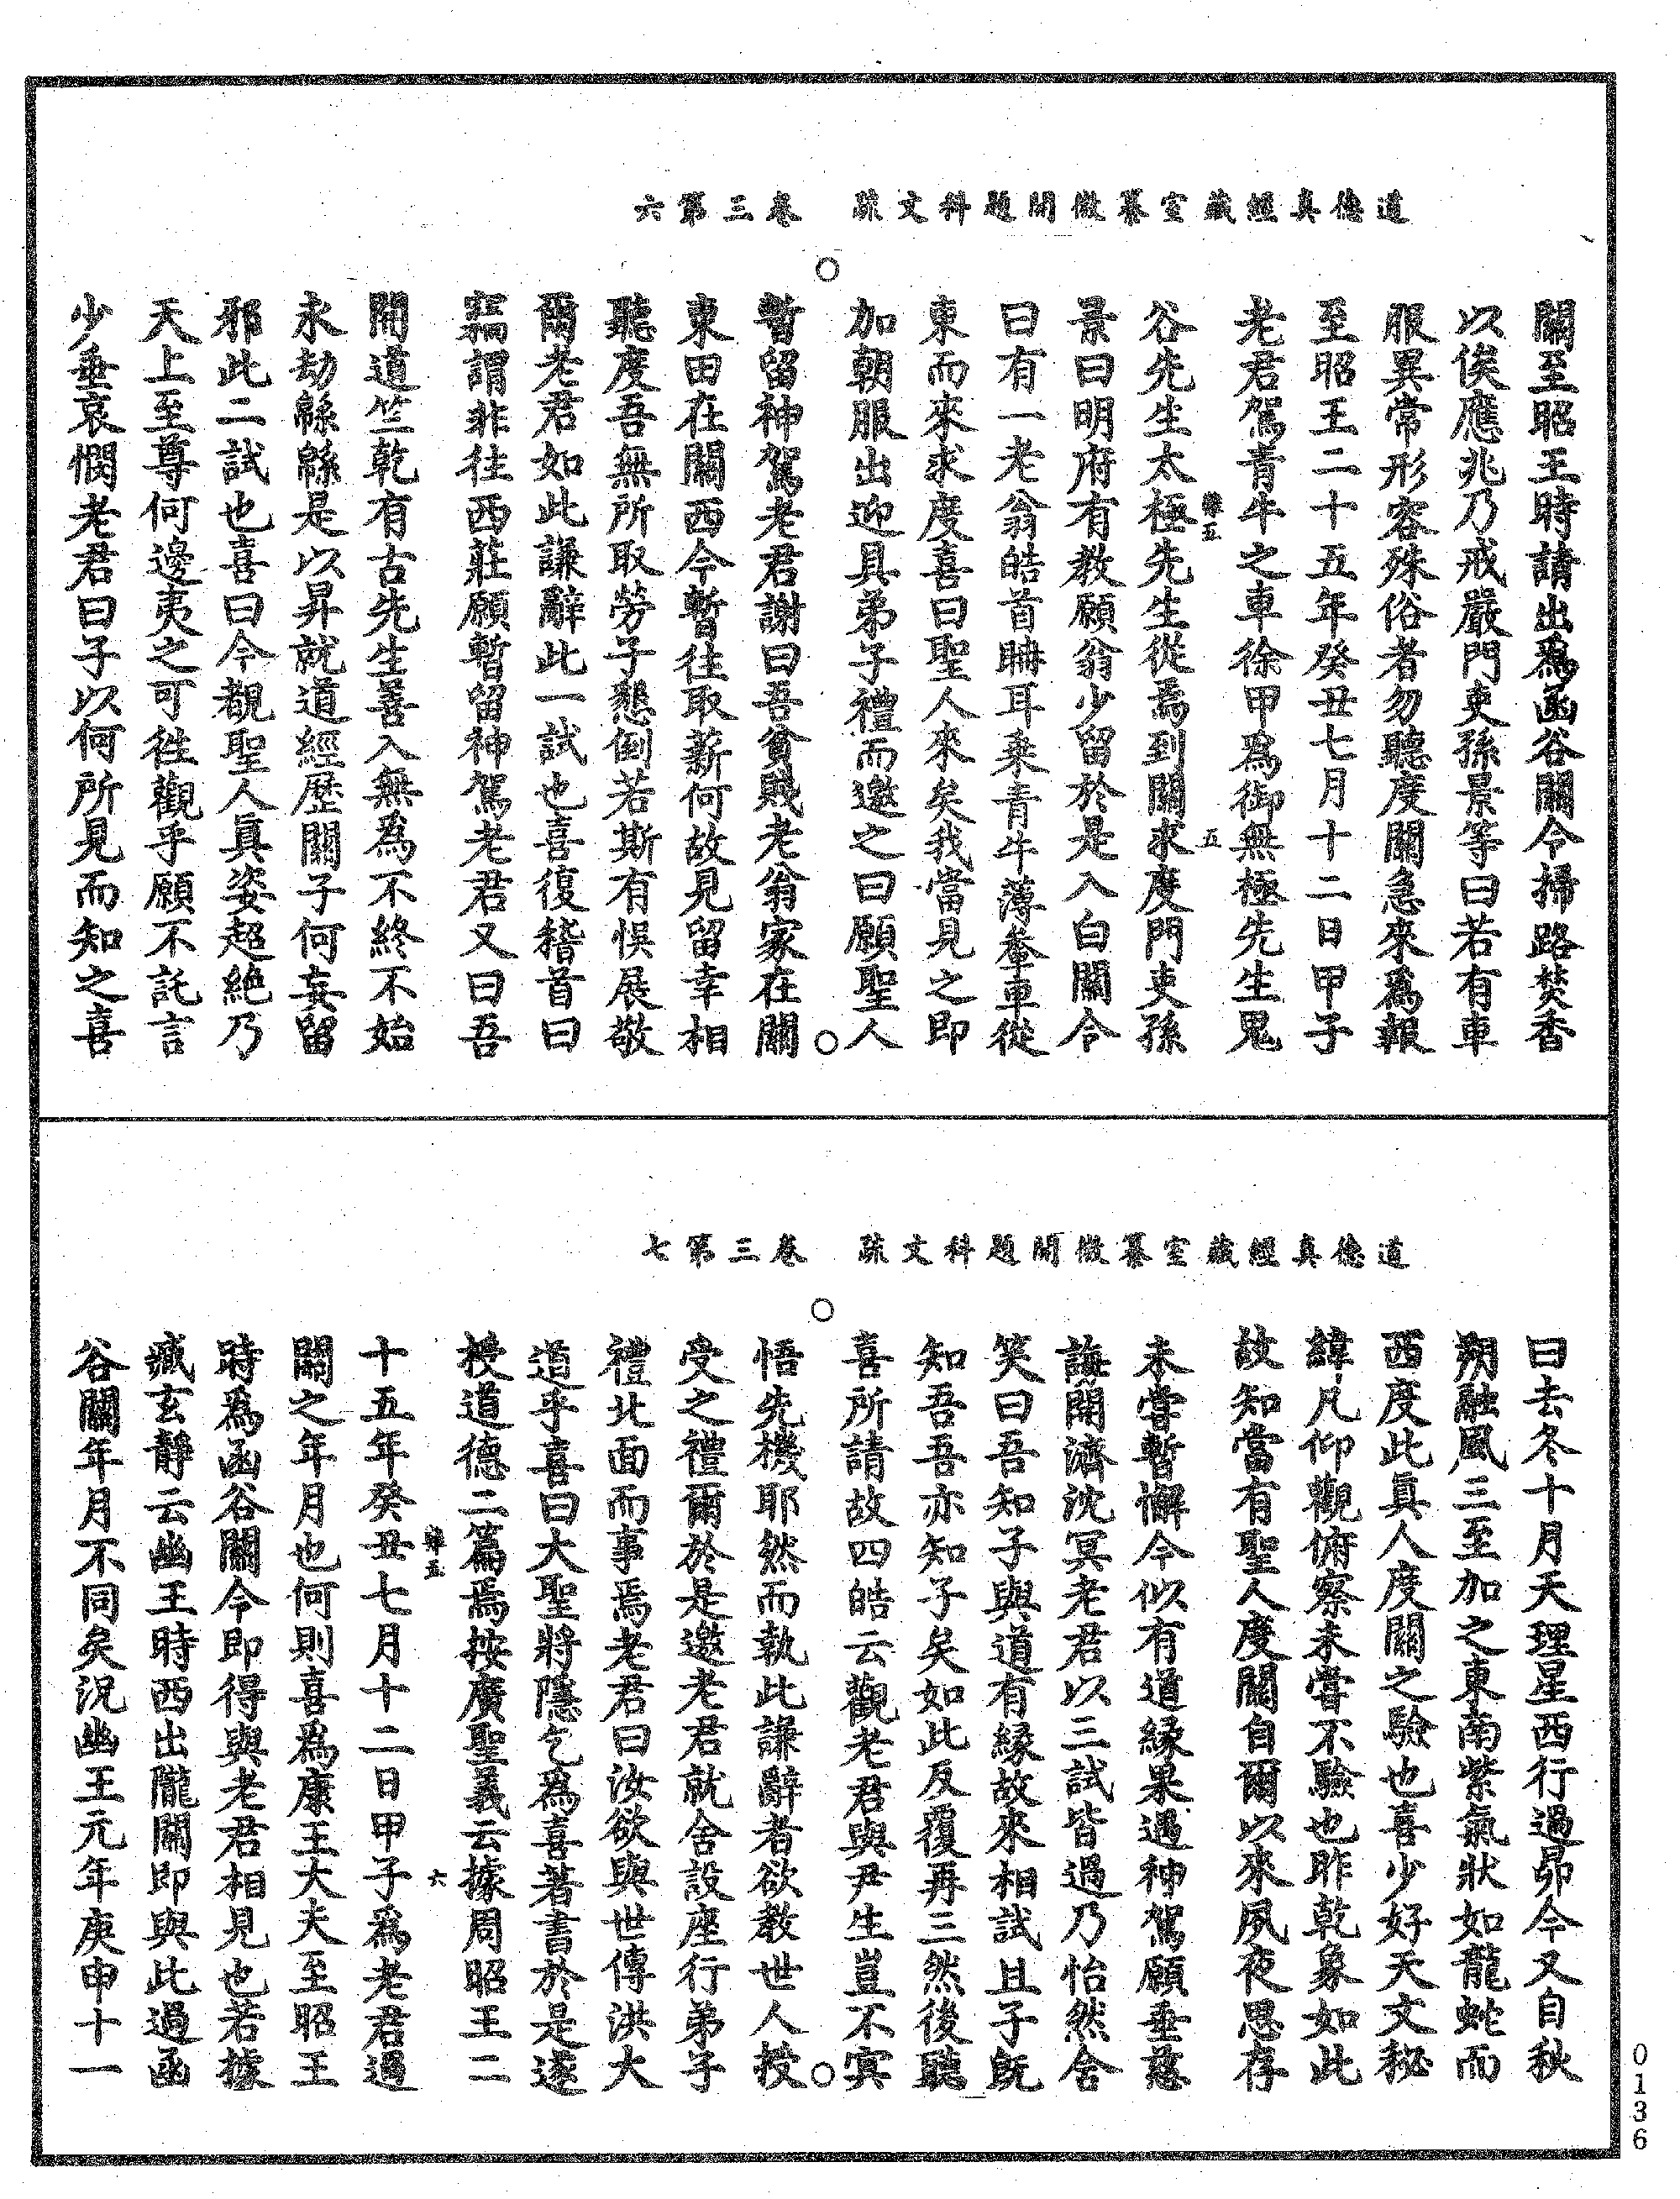 道德真經藏室纂微開題科文疏　卷三第六
關至昭王時請出爲函谷關令掃路焚香
以俟應兆乃戒嚴門吏孫景等曰若有車
服異常形容殊俗者勿聽度關急來爲報
至昭王二十五年癸丑七月十二日甲子
老君駕青牛之車徐甲爲御無極先生鬼
五
谷先生太極先生從焉到關求度門吏孫
景曰明府有教願翁少留於是入白關令
曰有一老翁皓首聃耳乘青牛薄輂車從
東而來求度喜曰聖人來矣我當見之即
加朝服出迎具弟子禮而邀之曰願聖人
暫留神駕老君謝曰吾貧賤老翁家在關
東田在關西今暫往取薪何故見留幸相
聽度吾無所取勞子懇倒若斯有悞展敬
爾老君如此謙辭此一試也喜復稽首曰
竊謂非往西莊願暫留神駕老君又曰吾
聞道竺乾有古先生善入無爲不終不始
永劫緜緜是以昇就道經歷關子何妄留
邪此二試也喜曰今覩聖人眞姿超絶乃
天上至尊何邊夷之可徃觀乎願不託言
少垂哀憫老君曰子以何所見而知之喜
道德真經藏室纂微開題科文疏　卷三第七
曰去冬十月天理星西行過昴今又自秋
朔融風三至加之東南紫氣狀如龍蛇而
西度此眞人度關之驗也喜少好天文秘
緯凡仰觀俯察未嘗不驗也昨乾象如此
故知當有聖人度關自爾以來夙夜思存
未嘗暫懈今似有道緣果遇神駕願垂慈
誨開濟沈冥老君以三試皆過乃怡然含
笑曰吾知子與道有緣故來相試且子旣
知吾吾亦知子矣如此反覆再三然後聽
喜所請故四皓云觀老君與尹生豈不寅
悟先機耶然而執此謙辭者欲教世人授
受之禮爾於是邀老君就舍設座行弟子
禮北面而事焉老君曰汝欲與世傳洪大
道乎喜曰大聖將隱乞爲喜著書於是遂
授道德二篇焉按廣聖義云據周昭王二
六
十五年癸丑七月十二日甲子爲老君過
關之年月也何則喜爲康王大夫至昭王
時爲函谷關令即得與老君相見也若據
臧玄靜云幽王時西出隴關即與此過函
谷關年月不同矣況幽王元年庚申十一
0136